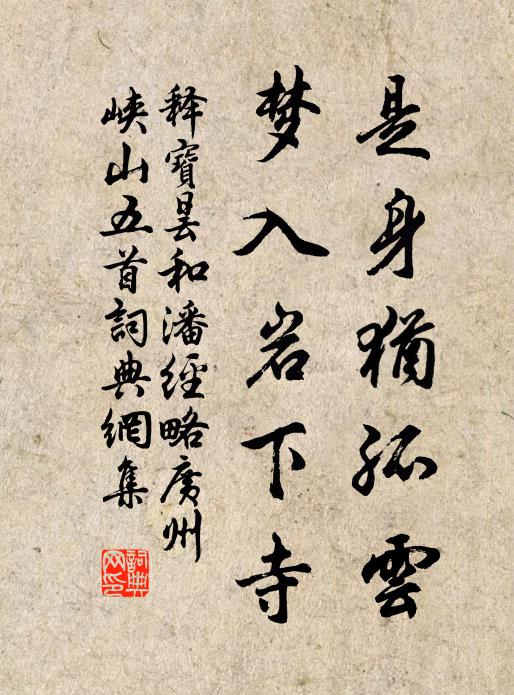 是身猶孤雲
梦入岩下寺
释寶昙和潘經略廣州
峽山五首詞典網集
詞典网印